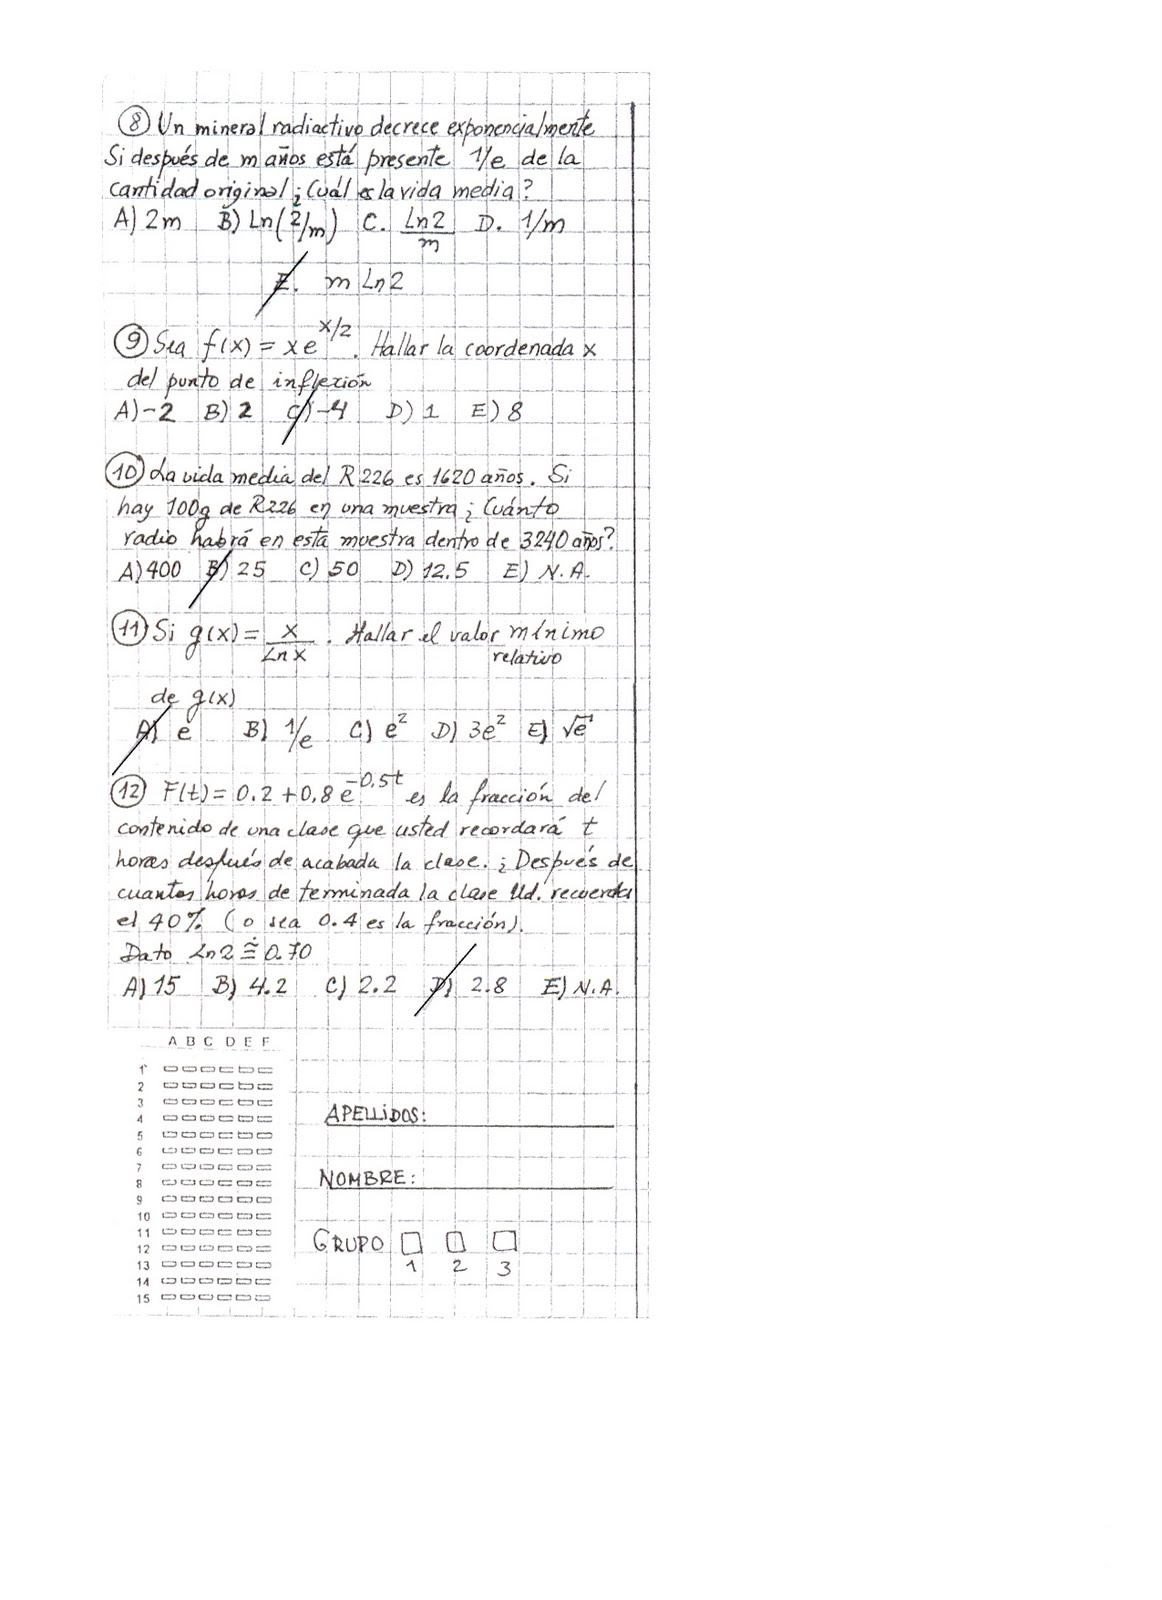 ⑧ Un mineral radiactivo decrece exponencialmente
Si después de m años está presente 1/e de la
cantidad original ¿Cuál es la vida media?
A) 2m B) Ln(2/m) C. Ln2/m D. 1/m
E. m Ln2
⑨ Sea f(x) = x e^x/2. Hallar la coordenada x
del punto de inflexión
A) -2 B) 2 C) -4 D) 1 E) 8
⑩ La vida media del R226 es 1620 años. Si
hay 100g de R226 en una muestra ¿Cuánto
radio habrá en esta muestra dentro de 3240 años?
A) 400 B) 25 C) 50 D) 12.5 E) N.A.
⑪ Si g(x) = x/Ln x. Hallar el valor mínimo
relativo
de g(x)
A) e B) 1/e C) e² D) 3e² E) √e
⑫ F(t) = 0.2 + 0,8 e^-0,5t es la fracción del
contenido de una clase que usted recordará t
horas después de acabada la clase. ¿Después de
cuantas horas de terminada la clase Ud. recuerda
el 40% (o sea 0.4 es la fracción).
Dato Ln2 ≅ 0.70
A) 15 B) 4.2 C) 2.2 D) 2.8 E) N.A.
A B C D E F
1
2
3
4
5
6
7
8
9
10
11
12
13
14
15
APELLIDOS:
NOMBRE:
GRUPO
1 2 3